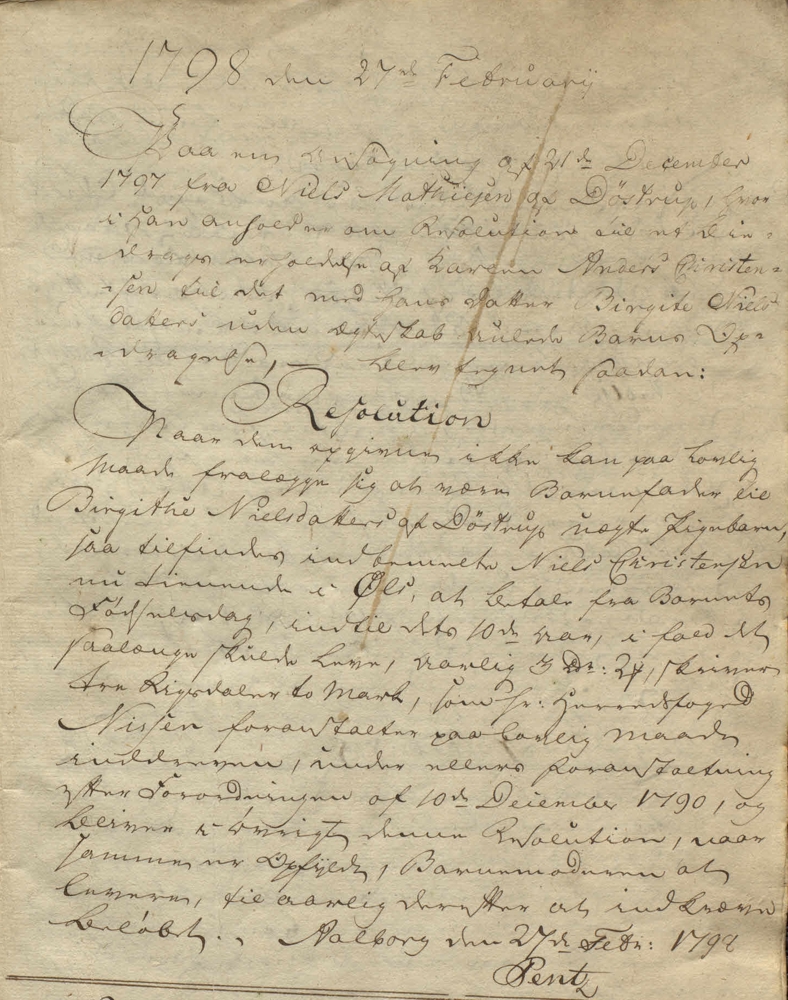 1798 den 27de Februarij
Paa een Ansøgning af 21de December
1797 fra Niels Mathiesen af Döstrup, hvor
i han anholder om Resolution til et bie-
drags erholdelse af Karlen Anders Christen-
sen til det med hans datter Birgite Niels
datters uden Ægteskab aulede Barns Op-
dragelse, — blev tegnet saadan:
Resolution
Naar den opgivne ikke kan paa lovlig
Maade fralægge sig at være Barnefader til
Birgithe Nielsdatters af Döstrup uægte Pigebarn,
saa tilfindes indbemelte Niels Christensen
nu tienende i Øls, at betale fra Barnets
Födselsdag, indtil dets 10de Aar, i fald det
saalænge skulde leve, aarlig 3 Rdr: 2 , skriver
tre Rigsdaler to Mark, som Hr: Herredsfoged
Nissen foranstalter paa lovlig Maade
inddreven, under ellers Foranstaltning
efter Forordningen af 10de December 1790, og
bliver i övrigt denne Resolution, naar
samme er Opfyldt, Barnemoderen at
levere, til aarlig derefter at indkræve
Belöbet. . Aalborg den 27de Febr: 1798
Pentz